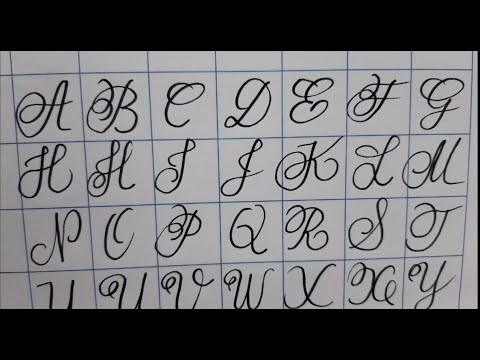 A B C D E F G
H H I J K L M
N O P Q R S T
U U V W X X Y